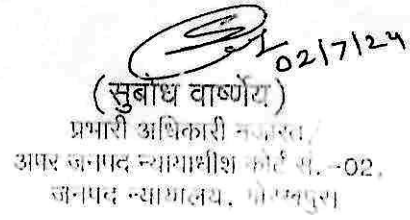 02/7/24
(सुबोध वार्ष्णेय)
प्रभारी अधिकारी नजारत,
अपर जनपद न्यायाधीश कोर्ट सं.-02,
जनपद न्यायालय, गोरखपुर।